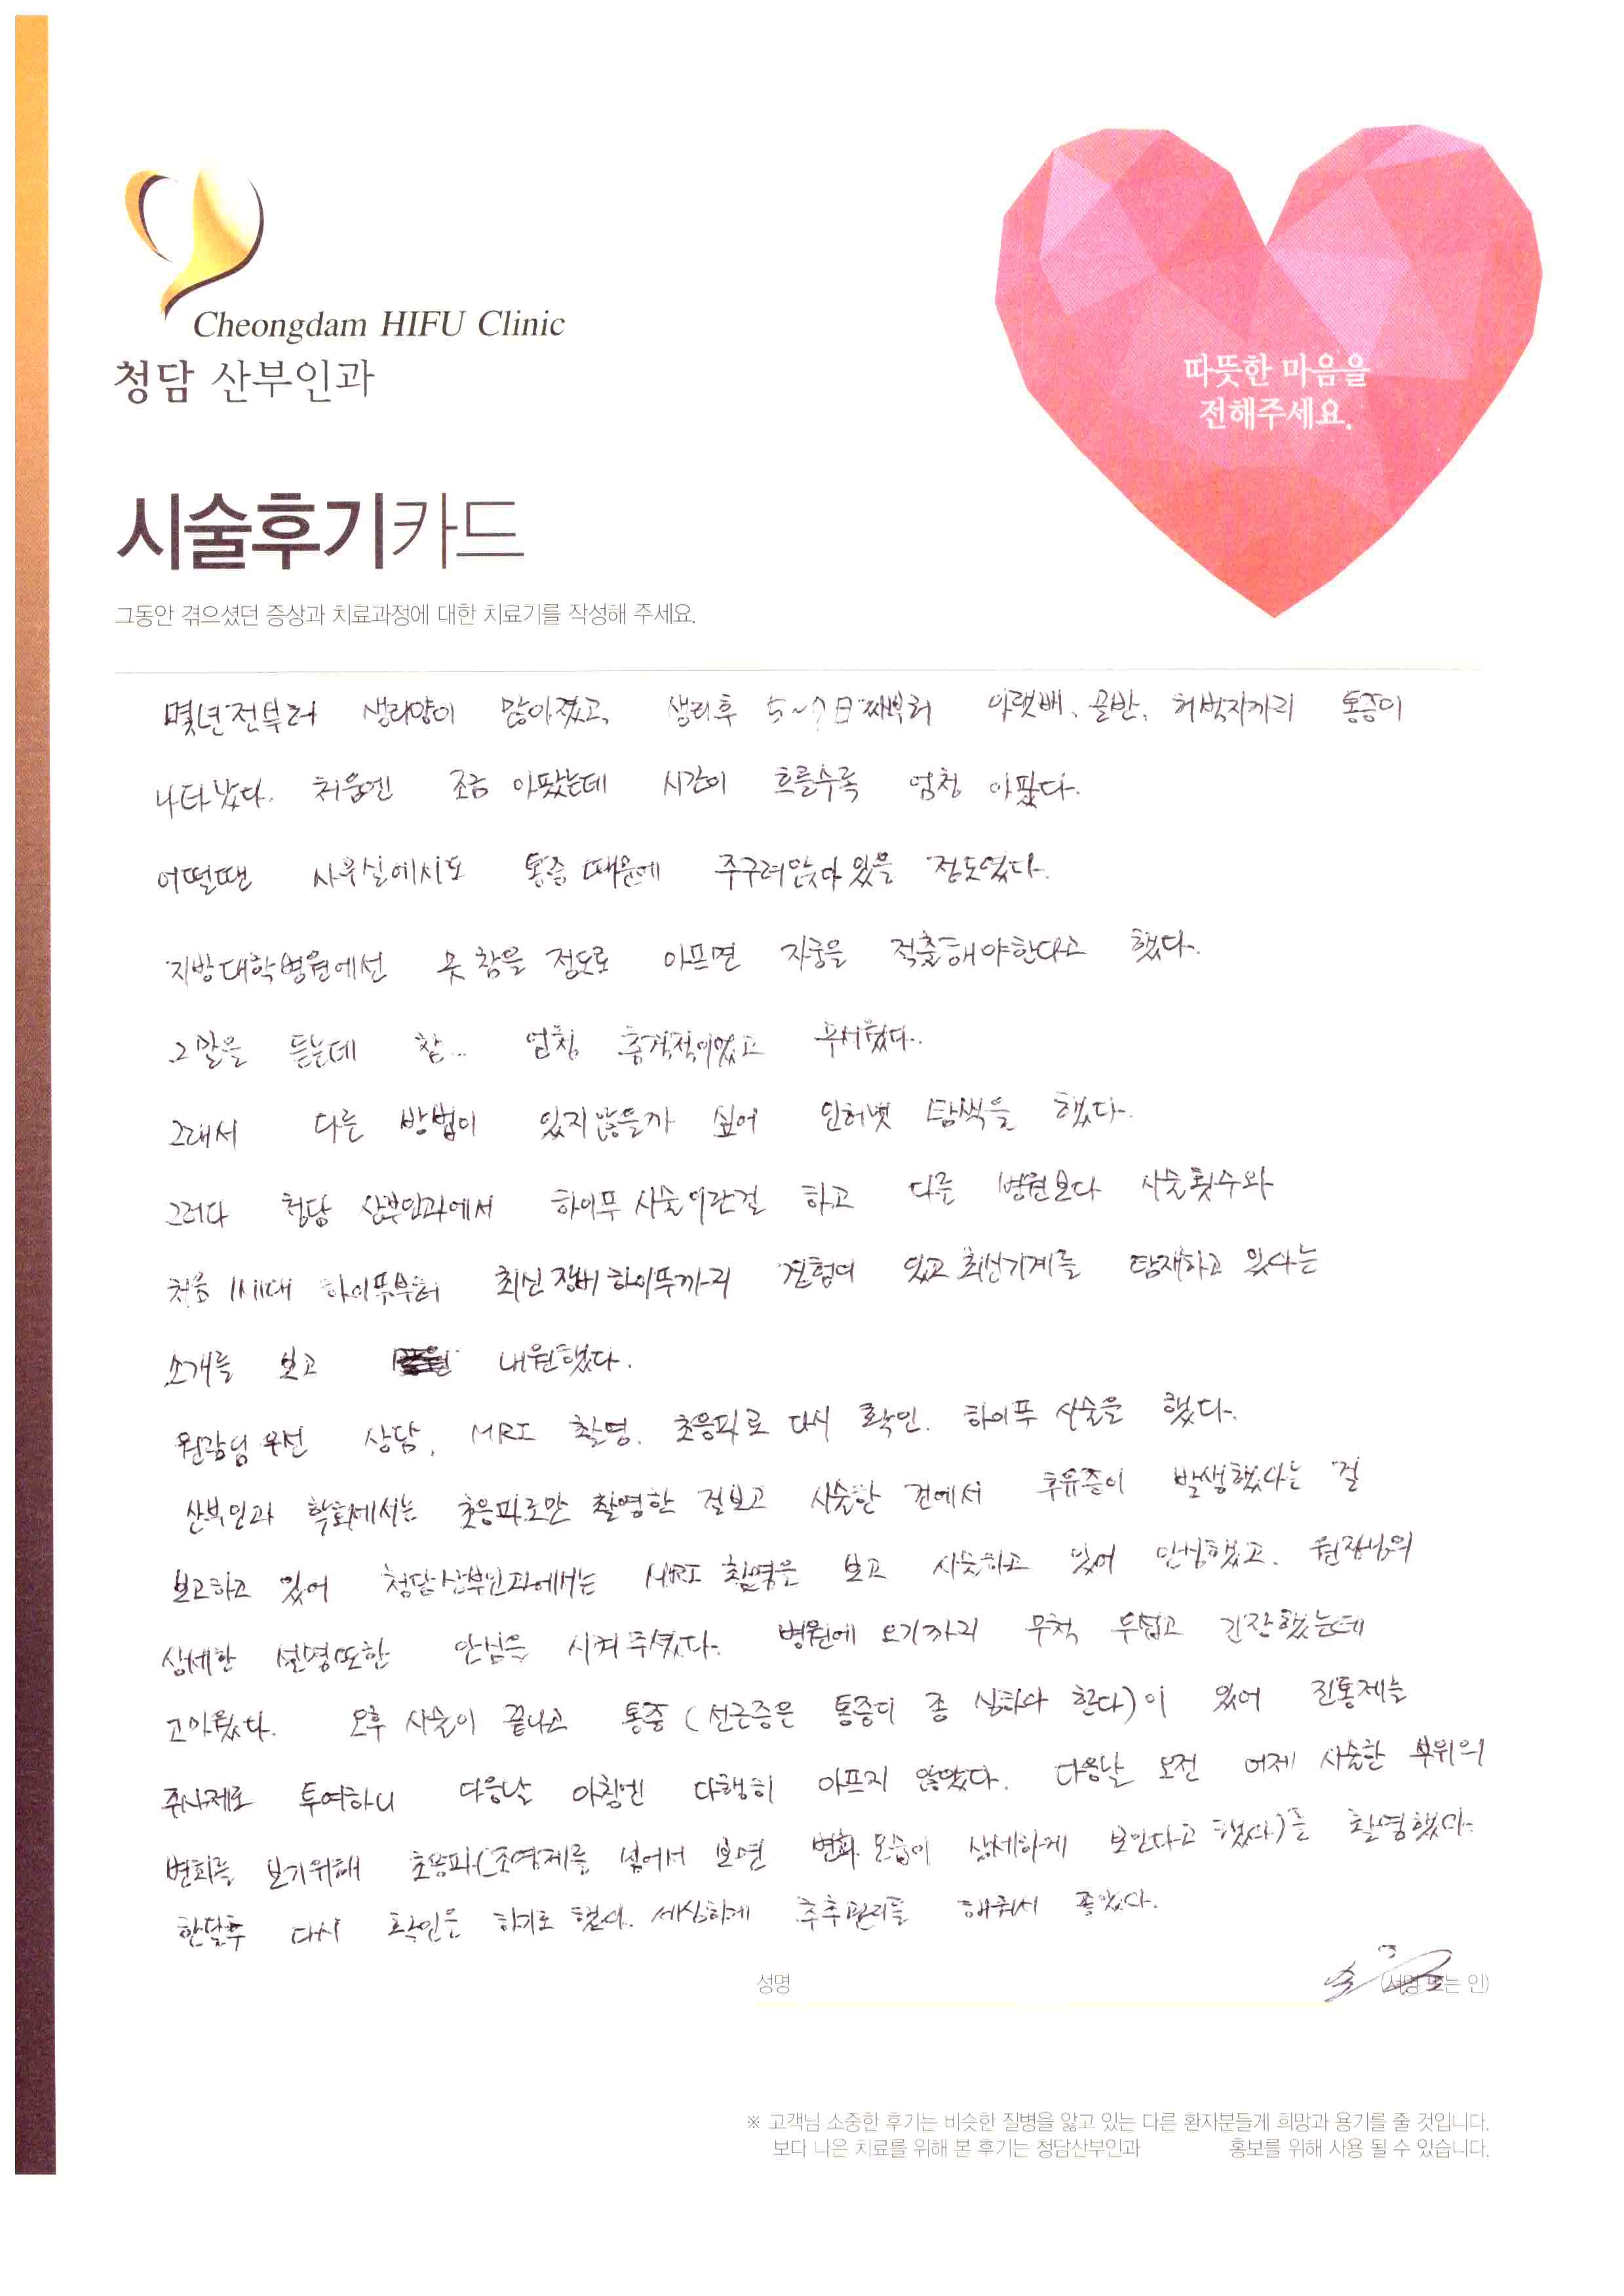 Cheongdam HIFU Clinic
청담 산부인과
따뜻한 마음을
전해주세요.
시술후기카드
그동안 겪으셨던 증상과 치료과정에 대한 치료기를 작성해 주세요.
몇년전부터 생리양이 많아졌고, 생리후 5~7日째부터 아랫배, 골반, 허벅지까지 통증이
나타났다. 처음엔 조금 아팠는데 시간이 흐를수록 엄청 아팠다.
어떨땐 사무실에서도 통증 때문에 주구려앉아 있을 정도였다.
지방대학병원에선 못 참을 정도로 아프면 자궁을 적출해야한다고 했다.
그 말을 듣는데 참... 엄청 충격적이였고 무서웠다..
그래서 다른 방법이 있지않을까 싶어 인터넷 탐색을 했다.
그러다 청담 산부인과에서 하이푸 시술이란걸 하고 다른 병원보다 시술횟수와
처음 1세대 하이푸부터 최신장비 하이푸까지 경험이 있고 최신기계를 탑재하고 있다는
소개를 보고 내원했다.
원장님 우선 상담, MRI 촬영, 초음파로 다시 확인. 하이푸 시술을 했다.
산부인과 학회에서는 초음파로만 촬영한 걸보고 시술한 건에서 후유증이 발생했다는 걸
보고하고 있어 청담산부인과에서는 MRI 촬영을 보고 시술하고 있어 안심했고, 원장님의
상세한 설명또한 안심을 시켜주셨다. 병원에 오기까지 무척 무섭고 긴장했는데
고마웠다. 오후 시술이 끝나고 통증 (선근증은 통증이 좀 심하다 한다)이 있어 진통제를
주사제로 투여하니 다음날 아침엔 다행히 아프지 않았다. 다음날 오전 어제 시술한 부위의
변화를 보기위해 초음파(조영제를 넣어서 보면 변화 모습이 상세하게 보인다고 했다)를 촬영했다.
한달후 다시 확인을 하기로 했다. 세심하게 추후관리를 해줘서 좋았다.
성명 (서명 또는 인)
※ 고객님 소중한 후기는 비슷한 질병을 앓고 있는 다른 환자분들게 희망과 용기를 줄 것입니다.
보다 나은 치료를 위해 본 후기는 청담산부인과 홍보를 위해 사용 될 수 있습니다.